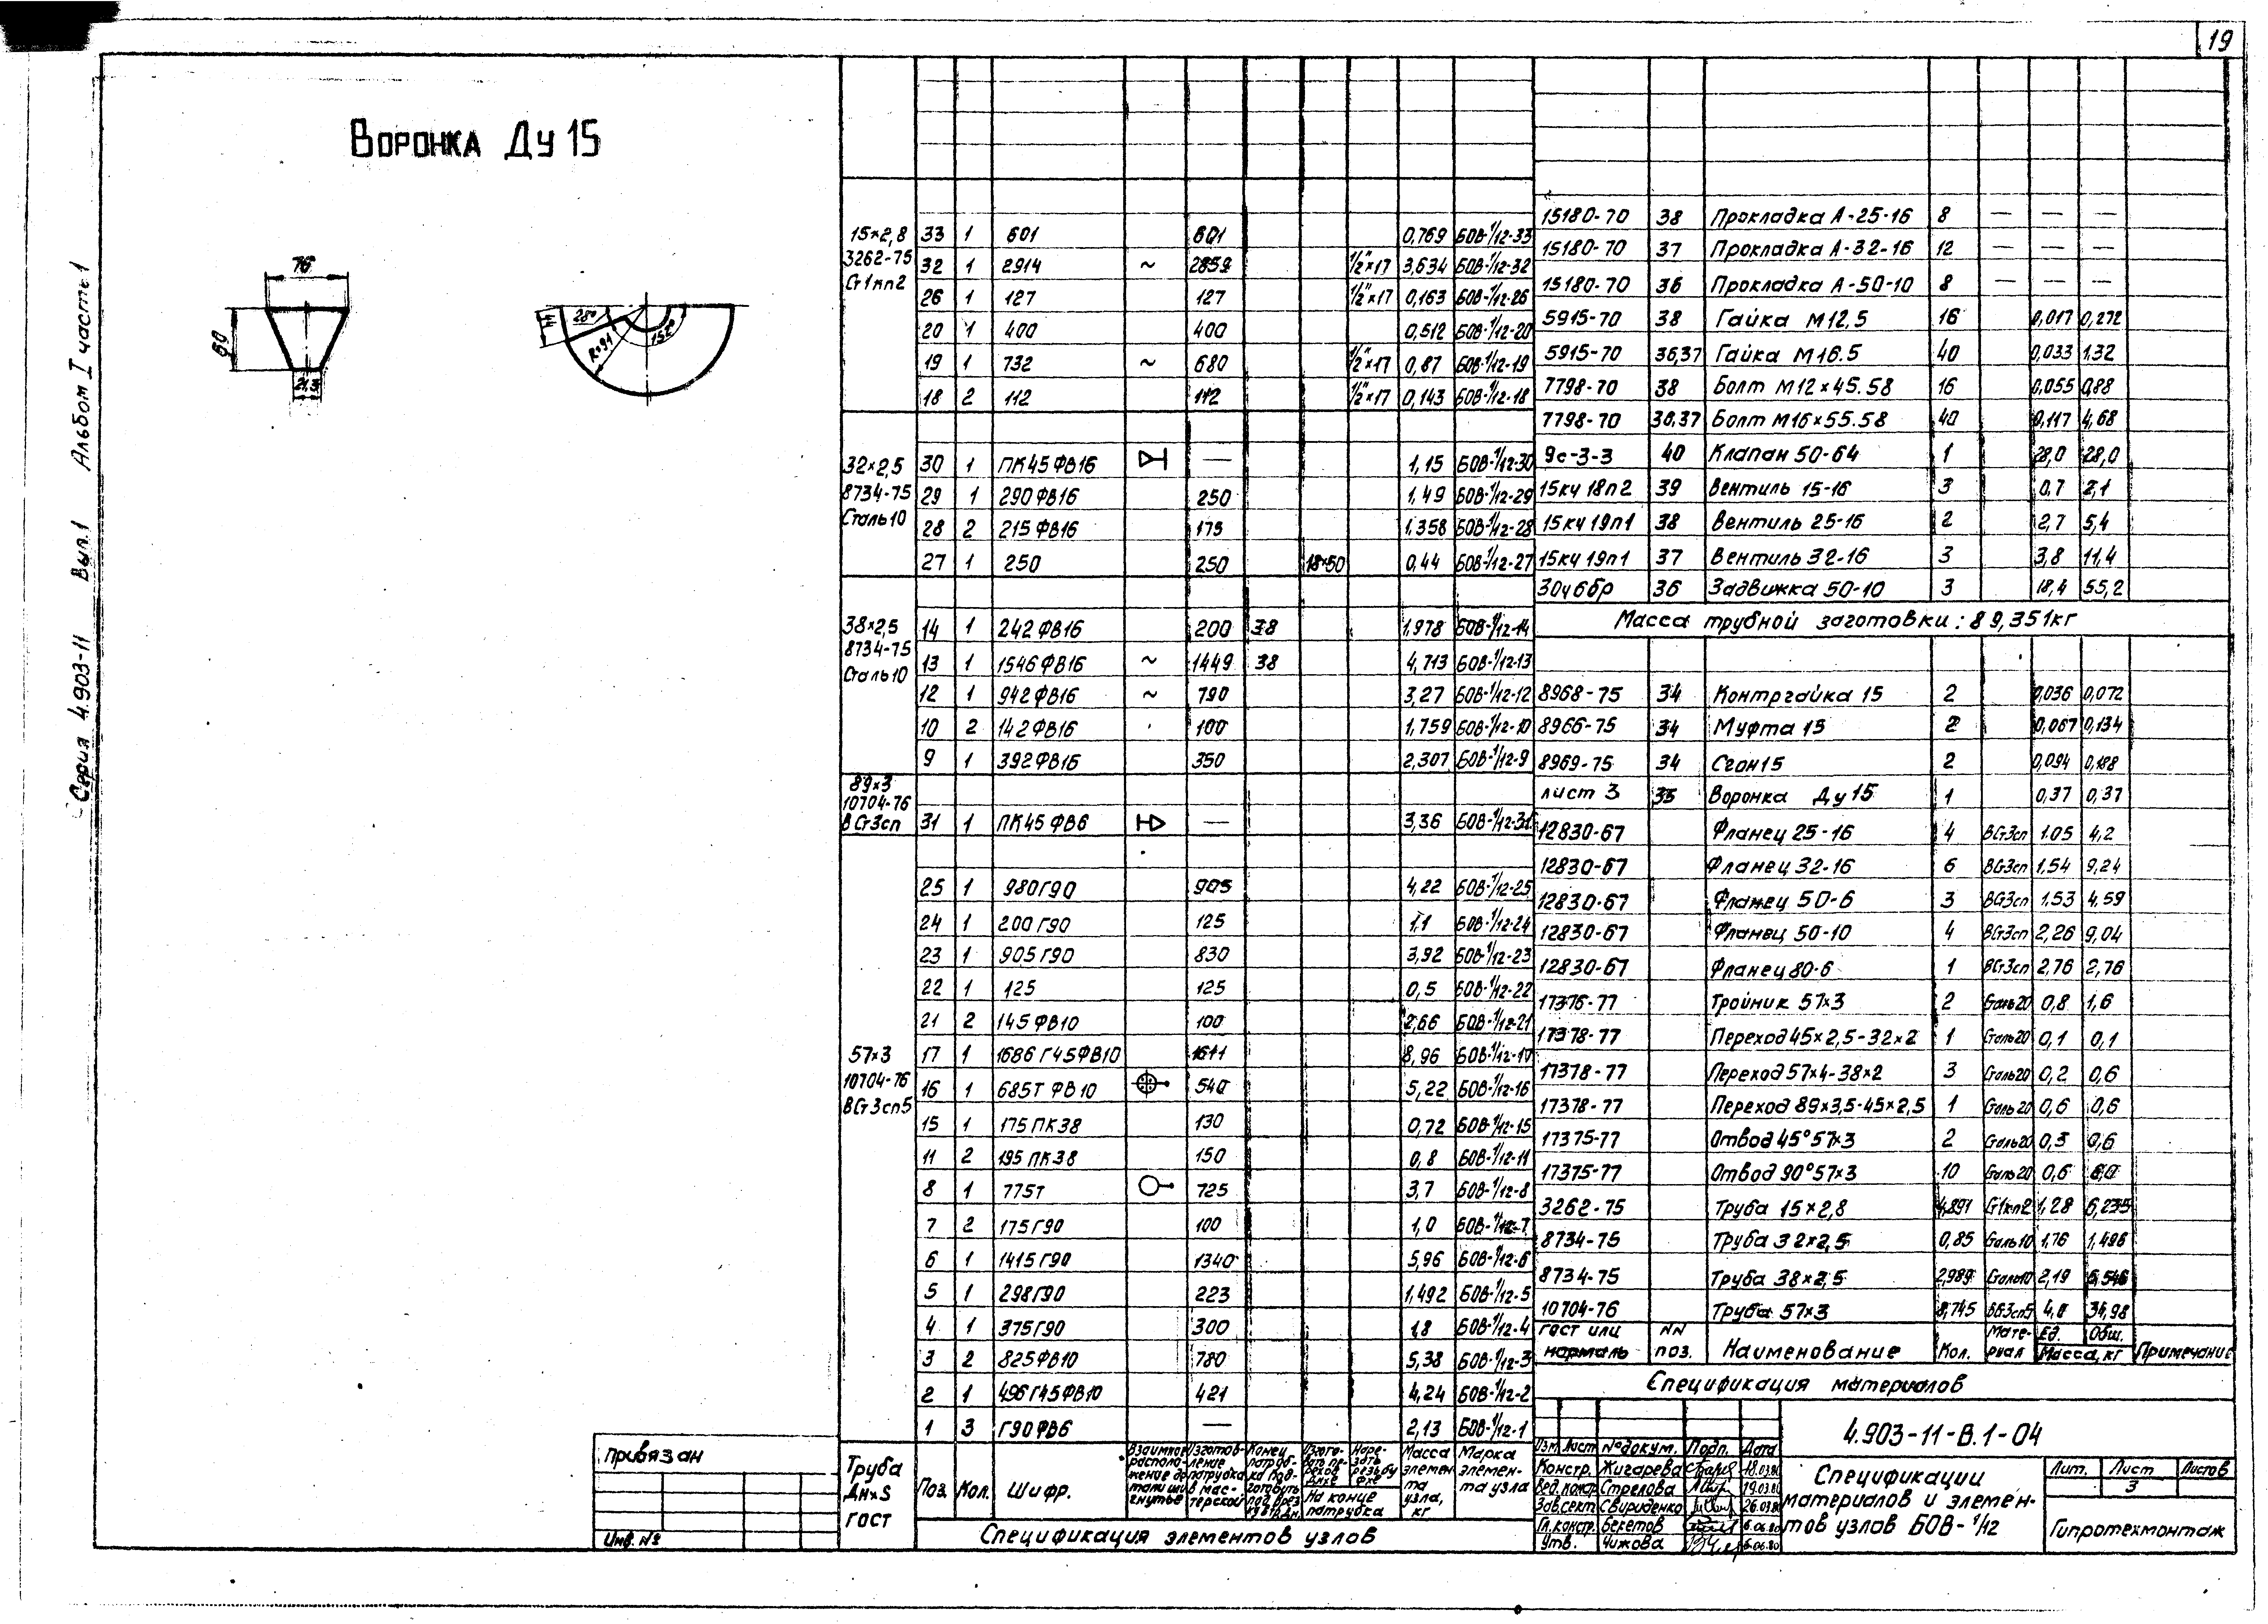 19
Серия 4.903-11 Вып.1 Альбом I часть 1
Воронка Ду 15
76
60
21,3
28°
R=91
152°
15×2,8
3262-75
Ст1кп2
33 1 601 601 0,769 БОВ-1/12-33
32 1 2914 ~ 2859 1/2"×17 3,634 БОВ-1/12-32
26 1 127 127 1/2"×17 0,163 БОВ-1/12-26
20 1 400 400 0,512 БОВ-1/12-20
19 1 732 ~ 680 1/2"×17 0,87 БОВ-1/12-19
18 2 112 112 1/2"×17 0,143 БОВ-1/12-18
32×2,5
8734-75
Сталь 10
30 1 ПК45ФВ16 — 1,15 БОВ-1/12-30
29 1 290ФВ16 250 1,49 БОВ-1/12-29
28 2 215ФВ16 175 1,358 БОВ-1/12-28
27 1 250 250 18×50 0,44 БОВ-1/12-27
38×2,5
8734-75
Сталь 10
14 1 242ФВ16 200 38 1,978 БОВ-1/12-14
13 1 1546ФВ16 ~ 1449 38 4,713 БОВ-1/12-13
12 1 942ФВ16 ~ 790 3,27 БОВ-1/12-12
10 2 142ФВ16 100 1,759 БОВ-1/12-10
9 1 392ФВ16 350 2,307 БОВ-1/12-9
89×3
10704-76
ВСт3сп
31 1 ПК45ФВ6 — 3,36 БОВ-1/12-31
57×3
10704-76
ВСт3сп5
25 1 980Г90 905 4,22 БОВ-1/12-25
24 1 200Г90 125 1,1 БОВ-1/12-24
23 1 905Г90 830 3,92 БОВ-1/12-23
22 1 125 125 0,5 БОВ-1/12-22
21 2 145ФВ10 100 2,66 БОВ-1/12-21
17 1 1686Г45ФВ10 1611 8,96 БОВ-1/12-17
16 1 685Т ФВ10 540 5,22 БОВ-1/12-16
15 1 175ПК38 130 0,72 БОВ-1/12-15
11 2 195ПК38 150 0,8 БОВ-1/12-11
8 1 775т 725 3,7 БОВ-1/12-8
7 2 175Г90 100 1,0 БОВ-1/12-7
6 1 1415Г90 1340 5,96 БОВ-1/12-6
5 1 298Г90 223 1,492 БОВ-1/12-5
4 1 375Г90 300 1,8 БОВ-1/12-4
3 2 825ФВ10 780 5,38 БОВ-1/12-3
2 1 496Г45ФВ10 421 4,24 БОВ-1/12-2
1 3 Г90ФВ6 — 2,13 БОВ-1/12-1
Труба Дн×S ГОСТ
Поз.
Кол.
Шифр.
Взаимное расположение
Масса элемента узла, кг
Марка элемента узла
На конце патрубка
Спецификация элементов узлов
15180-70 38 Прокладка А-25-16 8 — — —
15180-70 37 Прокладка А-32-16 12 — — —
15180-70 36 Прокладка А-50-10 8 — — —
5915-70 38 Гайка М12,5 16 0,017 0,272
5915-70 36,37 Гайка М16.5 40 0,033 1,32
7798-70 38 Болт М12×45.58 16 0,055 0,88
7798-70 36,37 Болт М16×55.58 40 0,117 4,68
9с-3-3 40 Клапан 50-64 1 28,0 28,0
15кч 18п2 39 Вентиль 15-16 3 0,7 2,1
15кч 19п1 38 Вентиль 25-16 2 2,7 5,4
15кч 19п1 37 Вентиль 32-16 3 3,8 11,4
30ч6бр 36 Задвижка 50-10 3 18,4 55,2
Масса трубной заготовки: 89,351кг
8968-75 34 Контргайка 15 2 0,036 0,072
8966-75 34 Муфта 15 2 0,067 0,134
8969-75 34 Сгон 15 2 0,094 0,188
лист 3 35 Воронка Ду 15 1 0,37 0,37
12830-67 Фланец 25-16 4 ВСт3сп 1.05 4,2
12830-67 Фланец 32-16 6 ВСт3сп 1.54 9,24
12830-67 Фланец 50-6 3 ВСт3сп 1.53 4,59
12830-67 Фланец 50-10 4 ВСт3сп 2,26 9,04
12830-67 Фланец 80-6 1 ВСт3сп 2,76 2,76
17376-77 Тройник 57×3 2 Сталь20 0,8 1,6
17378-77 Переход 45×2,5-32×2 1 Сталь20 0,1 0,1
17378-77 Переход 57×4-38×2 3 Сталь20 0,2 0,6
17378-77 Переход 89×3,5-45×2,5 1 Сталь20 0,6 0,6
17375-77 Отвод 45° 57×3 2 Сталь20 0,3 0,6
17375-77 Отвод 90° 57×3 10 Сталь20 0,6 6,0
3262-75 Труба 15×2,8 4,891 Ст1кп2 1,28 6,235
8734-75 Труба 32×2,5 0,85 Сталь10 1,76 1,496
8734-75 Труба 38×2,5 2,989 Сталь10 2,19 6,546
10704-76 Труба 57×3 8,745 ВСт3сп5 4,0 34,98
ГОСТ или нормаль
NN поз.
Наименование
Кол.
Материал
Ед. Общ.
Масса, кг
Примечание
Спецификация материалов
привязан
Инв. №
Изм. Лист № докум. Подп. Дата
Констр. Жигарева 18.03.80
Вед. констр. Стрелова 19.03.80
Зав.сект. Свириденко 26.03.80
Гл. констр. Бекетов 6.06.80
Утв. Чижова 6.06.80
4.903-11-В.1-04
Спецификации
материалов и элемен-
тов узлов БОВ-1/12
Лит. Лист Листов
3
Гипротехмонтаж